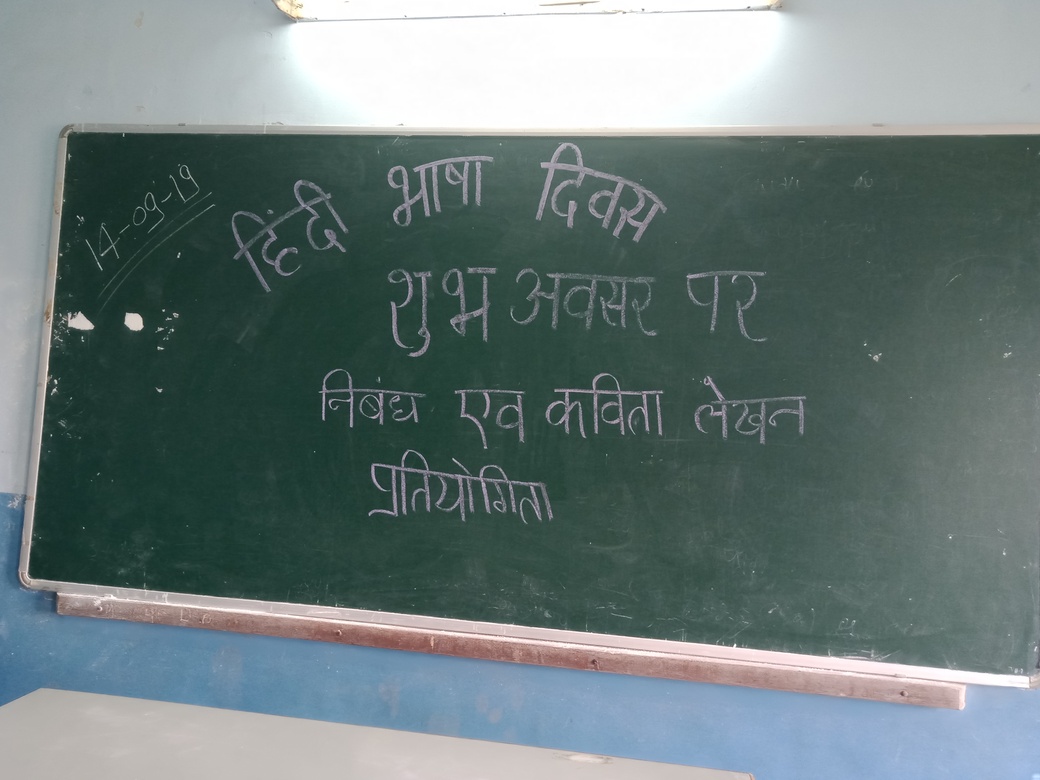 14-09-19
हिंदी भाषा दिवस
शुभ अवसर पर
निबंध एव कविता लेखन
प्रतियोगिता